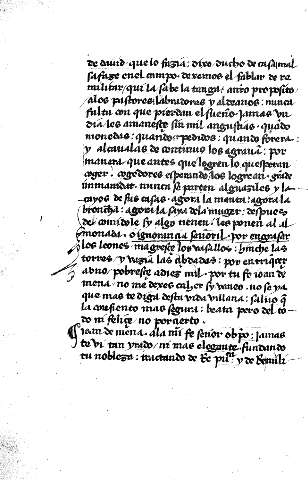 de david · que lo fuzia : dixo ducho de casa mal
sa faze en el campo · dexemos el fablar de re
militar / qui la sabe la tanga · a nro proposito
a los pastores labradores y aldeanos : nunca
falta con que pierdan el sueño · jamas vn
dia les amanesce sin mil angustias · quãdo
monedas : quando pedidos : quando forera :
y alcaualas de continuo los agrauia : por
manera que antes que logren lo que esperan
coger · cogedores esperando los logran · grãde
inmanidat · nunca se parten alguaziles y la
cayos de sus casas · agora la manta : agora la
broncha : agora la saya de la muger · despues
del comidole sy algo tienen · les ponen al al
monada · o ignorancia señoril · por engrasar
los leones · magresce los vasallos · hinche las
torres · y vazia las cibdades : por enrriqueçer
a vno / pobresce a diez mil · por tu fe ioan de
mena · no me dexes caher sy vaneo · no se ya
que mas te diga desta vida villana : saluo q̃
la confiento mas segura : beata pero del to
do ni felice · no por çierto ·
Ioan de mena · a la mi fe señor obpo : jamas
te vi tan yrado · ni mas elegante · fundando
tu nobleza : tractando de Re pu^ca · y de Re mili